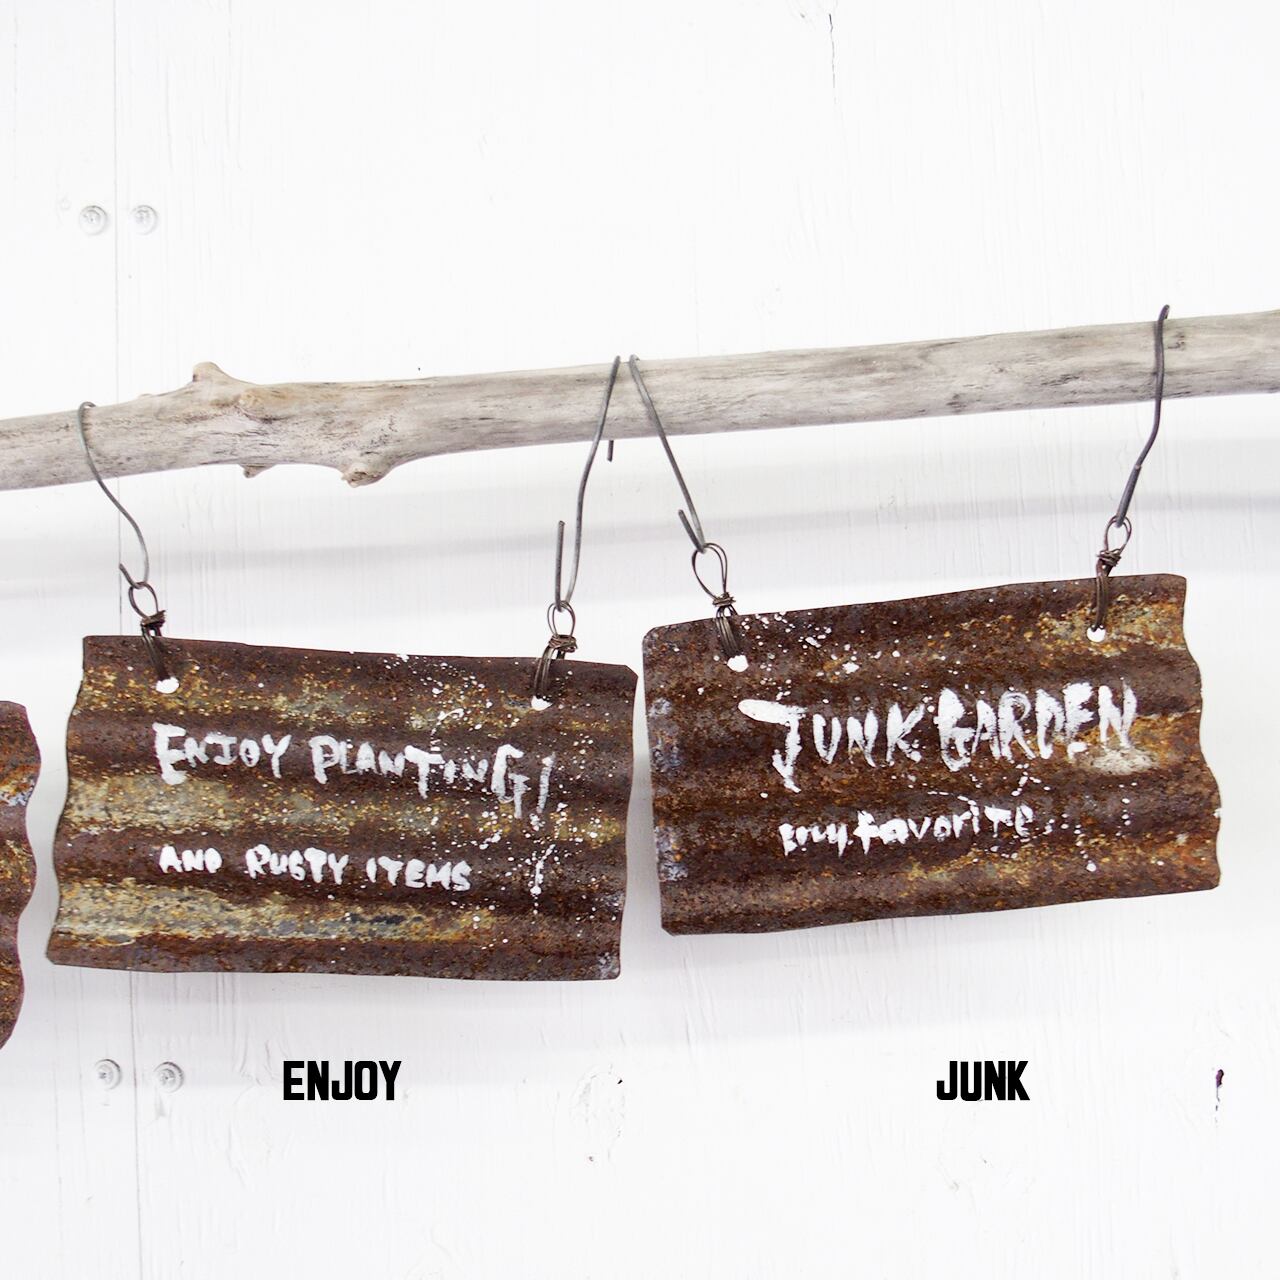 ENJOY PLANTING!
AND RUSTY ITEMS
JUNK GARDEN
my favorite.
ENJOY
JUNK